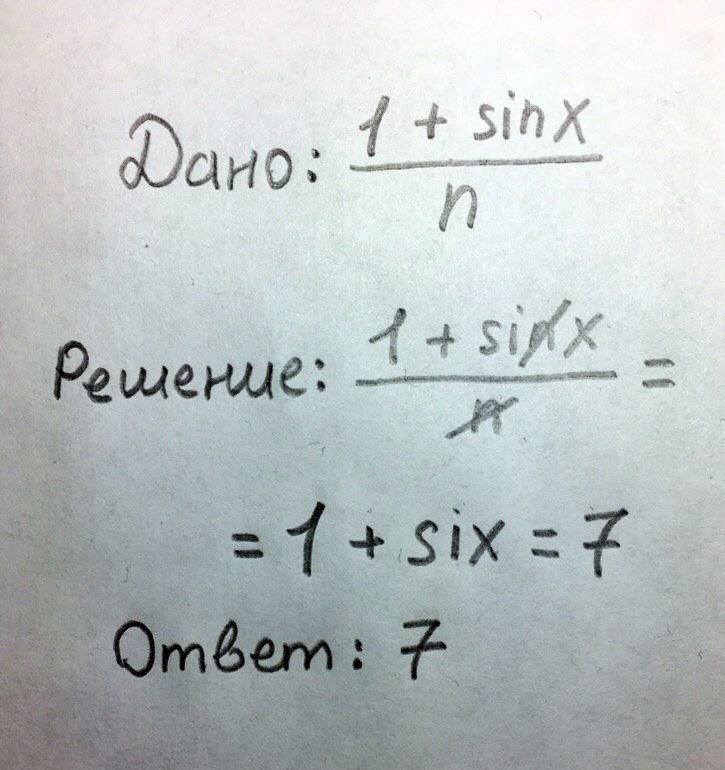 Дано: (1 + sinx)/n
Решение: (1 + sinx)/n =
= 1 + six = 7
Ответ: 7